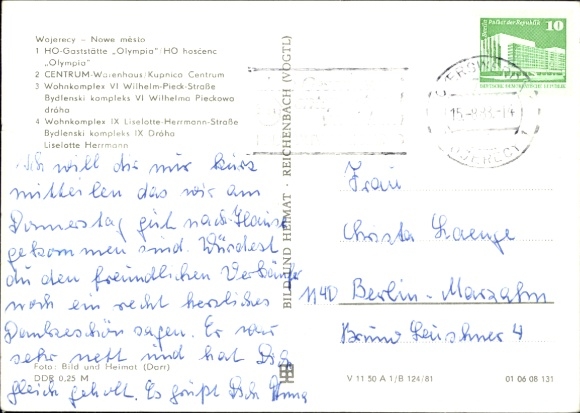 Wojerecy – Nowe město
1 HO-Gaststätte „Olympia" HO hosćenc
„Olympia"
2 CENTRUM-Warenhaus/Kupnica Centrum
3 Wohnkomplex VI Wilhelm-Pieck-Straße
Bydlenski kompleks VI Wilhelma Pieckowa
dróha
4 Wohnkomplex IX Liselotte-Herrmann-Straße
Bydlenski kompleks IX Dróha
Liselotte Herrmann
Ich will dir nur kurz
mitteilen das wir am
Donnerstag gut nach Hause
gekommen sind. Würdest
du den freundlichen
noch ein recht herzliches
Dankeschön sagen. Er war
sehr nett und hat
gleich geholt. Es grüßt Dich
Foto: Bild und Heimat (Dorr)
DDR 0,25 M
BILD UND HEIMAT · REICHENBACH (VOGTL)
10
Palast der Republik
15.-9.83.-14
Frau
Christa Laenge
1140 Berlin-Marzahn
Bruno Leuschner 4
V 11 50 A 1/B 124/81
01 06 08 131